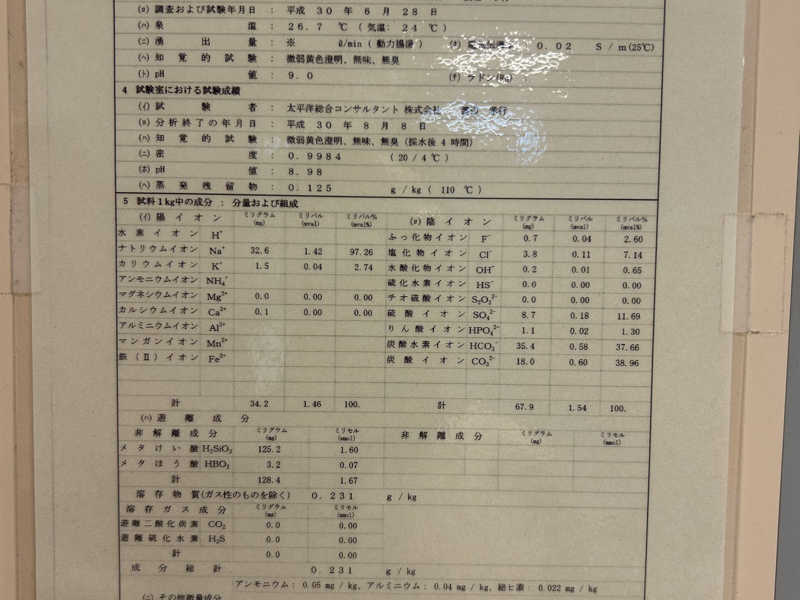 (ロ) 調査および試験年月日 : 平成 30 年 6 月 28 日
(ハ) 泉 温 : 26.7 ℃ ( 気温: 24 ℃ )
(ニ) 湧出量 : ※ ℓ/min ( 動力揚湯 ) 0.02 S/m(25℃)
(ヘ) 知覚的試験 : 微弱黄色澄明、無味、無臭
(ト) pH 値 : 9.0 (チ) ラドン(Rn)
4 試験室における試験成績
(イ) 試験者 : 太平洋総合コンサルタント 株式会社
(ロ) 分析終了の年月日 : 平成 30 年 8 月 8 日
(ハ) 知覚的試験 : 微弱黄色澄明、無味、無臭 (採水後 4 時間)
(ニ) 密度 : 0.9984 (20/4℃)
(ホ) pH 値 : 8.98
(ヘ) 蒸発残留物 : 0.125 g/kg ( 110 ℃)
5 試料1kg中の成分 : 分量および組成
(イ) 陽イオン ミリグラム (mg) ミリバル (mval) ミリバル% (mval%)
水素イオン H⁺
ナトリウムイオン Na⁺ 32.6 1.42 97.26
カリウムイオン K⁺ 1.5 0.04 2.74
アンモニウムイオン NH₄⁺
マグネシウムイオン Mg²⁺ 0.0 0.00 0.00
カルシウムイオン Ca²⁺ 0.1 0.00 0.00
アルミニウムイオン Al³⁺
マンガンイオン Mn²⁺
鉄(Ⅱ)イオン Fe²⁺
計 34.2 1.46 100.
(ロ) 陰イオン ミリグラム (mg) ミリバル (mval) ミリバル% (mval%)
ふっ化物イオン F⁻ 0.7 0.04 2.60
塩化物イオン Cl⁻ 3.8 0.11 7.14
水酸化物イオン OH⁻ 0.2 0.01 0.65
硫化水素イオン HS⁻ 0.0 0.00 0.00
チオ硫酸イオン S₂O₃²⁻ 0.0 0.00 0.00
硫酸イオン SO₄²⁻ 8.7 0.18 11.69
りん酸イオン HPO₄²⁻ 1.1 0.02 1.30
炭酸水素イオン HCO₃⁻ 35.4 0.58 37.66
炭酸イオン CO₃²⁻ 18.0 0.60 38.96
計 67.9 1.54 100.
(ハ) 遊離成分
非解離成分 ミリグラム (mg) ミリモル (mmol)
メタけい酸 H₂SiO₃ 125.2 1.60
メタほう酸 HBO₂ 3.2 0.07
計 128.4 1.67
非解離成分 ミリグラム (mg) ミリモル (mmol)
溶存物質(ガス性のものを除く) 0.231 g/kg
溶存ガス成分 ミリグラム (mg) ミリモル (mmol)
遊離二酸化炭素 CO₂ 0.0 0.00
遊離硫化水素 H₂S 0.0 0.00
計 0.0 0.00
成分総計 0.231 g/kg
アンモニウム: 0.05 mg/kg, アルミニウム: 0.04 mg/kg, 総ヒ素: 0.022 mg/kg
(ニ) その他微量成分